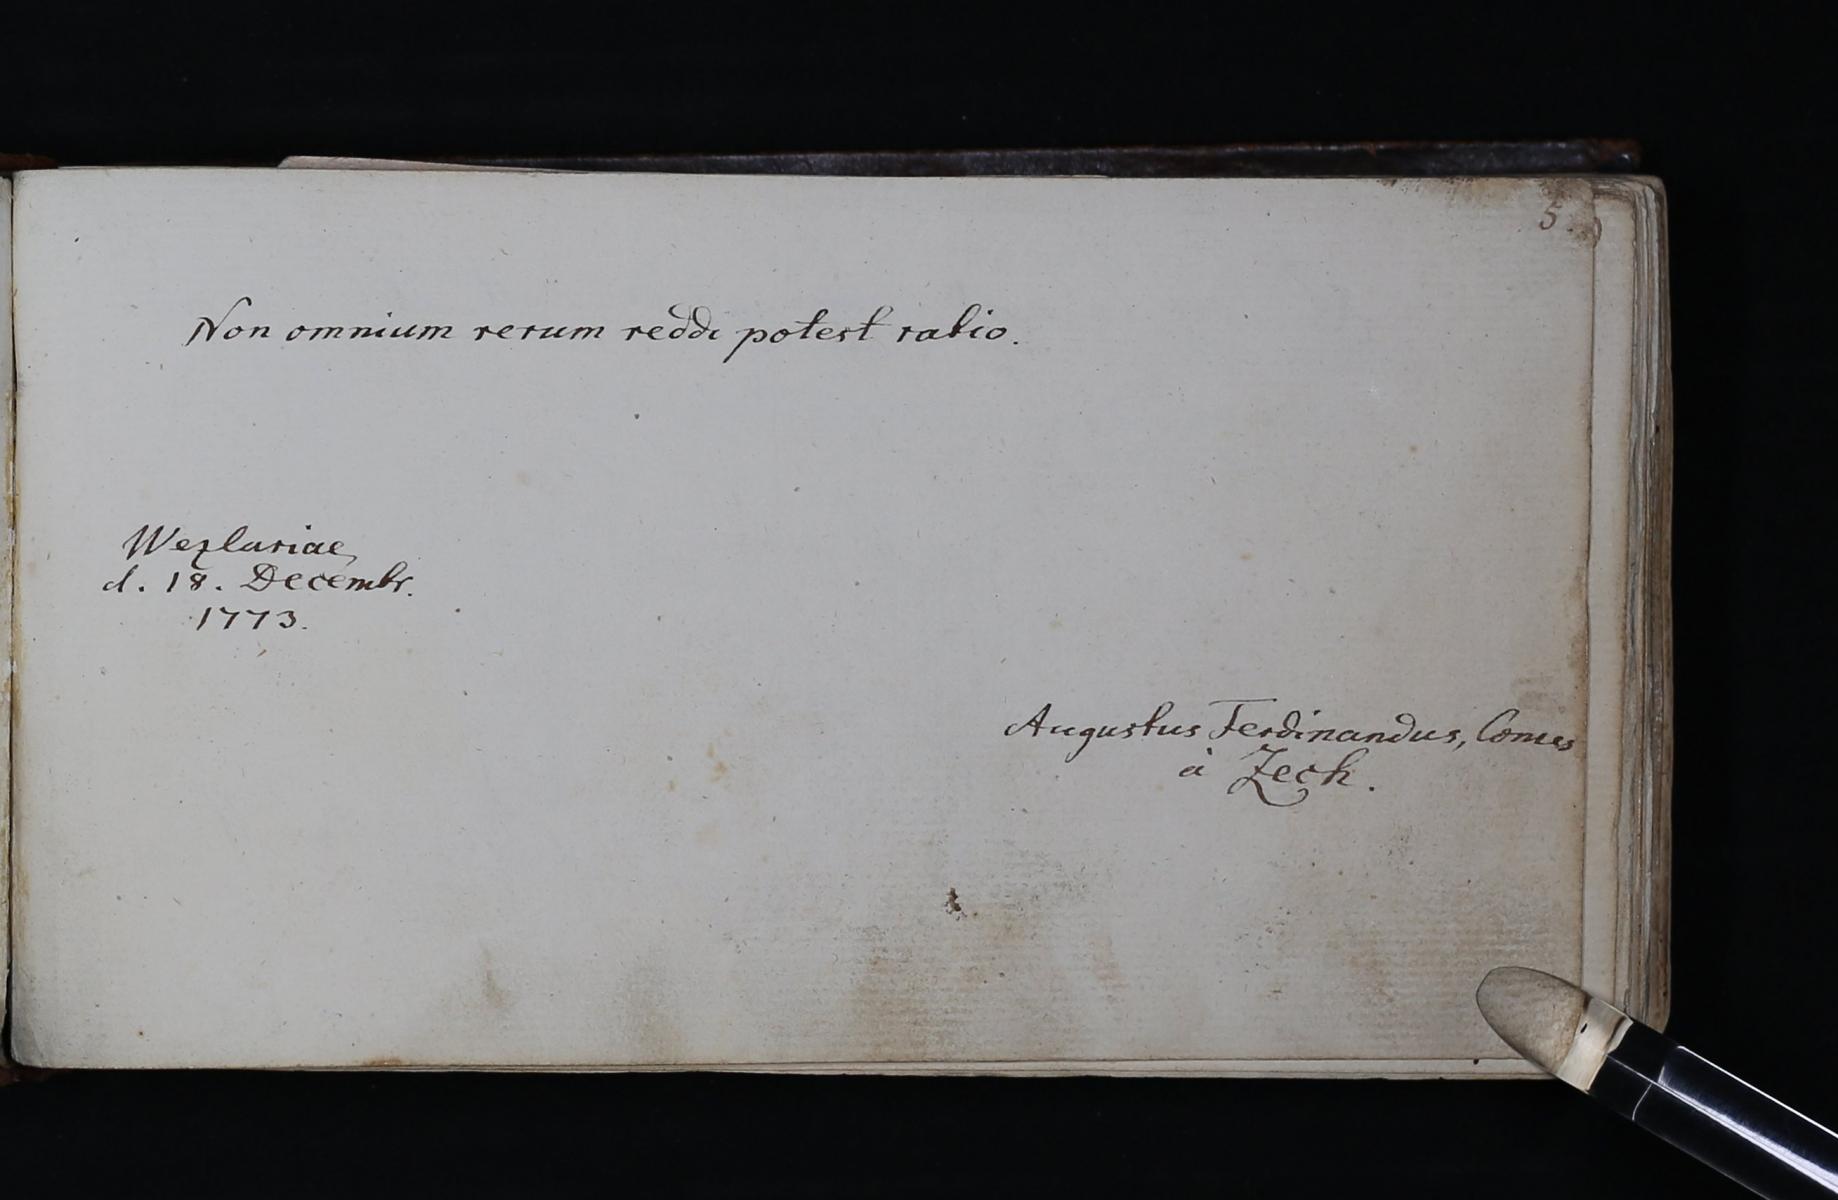 5.
Non omnium rerum reddi potest ratio.
Wezlariae,
d. 18. Decembr.
1773.
Augustus Ferdinandus, Comes
à Zech.